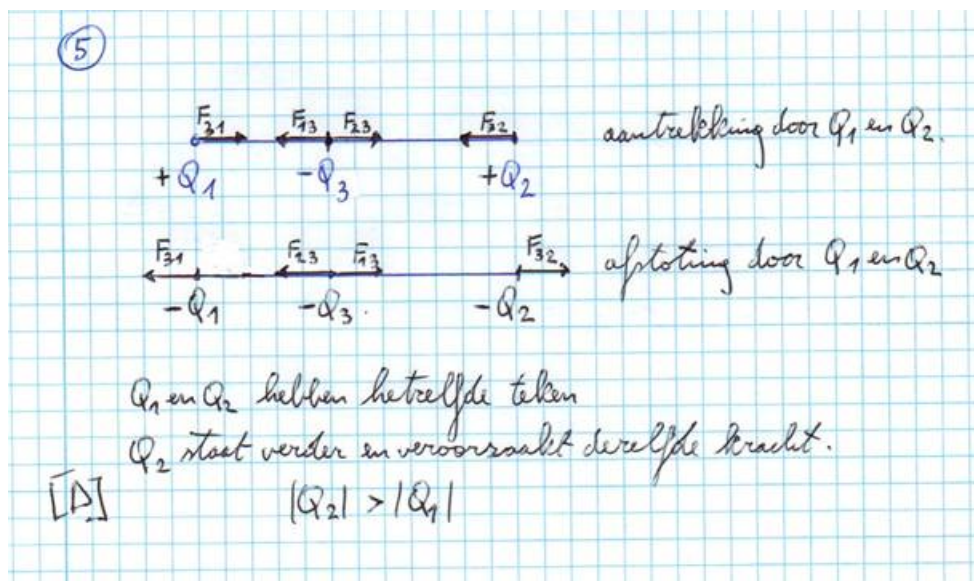 5
F31 F13 F23 F32 aantrekking door Q1 en Q2.
+Q1 -Q3 +Q2
F31 F23 F13 F32 afstoting door Q1 en Q2
-Q1 -Q3. -Q2
Q1 en Q2 hebben hetzelfde teken
Q2 staat verder en veroorzaakt dezelfde kracht.
[D] |Q2| > |Q1|